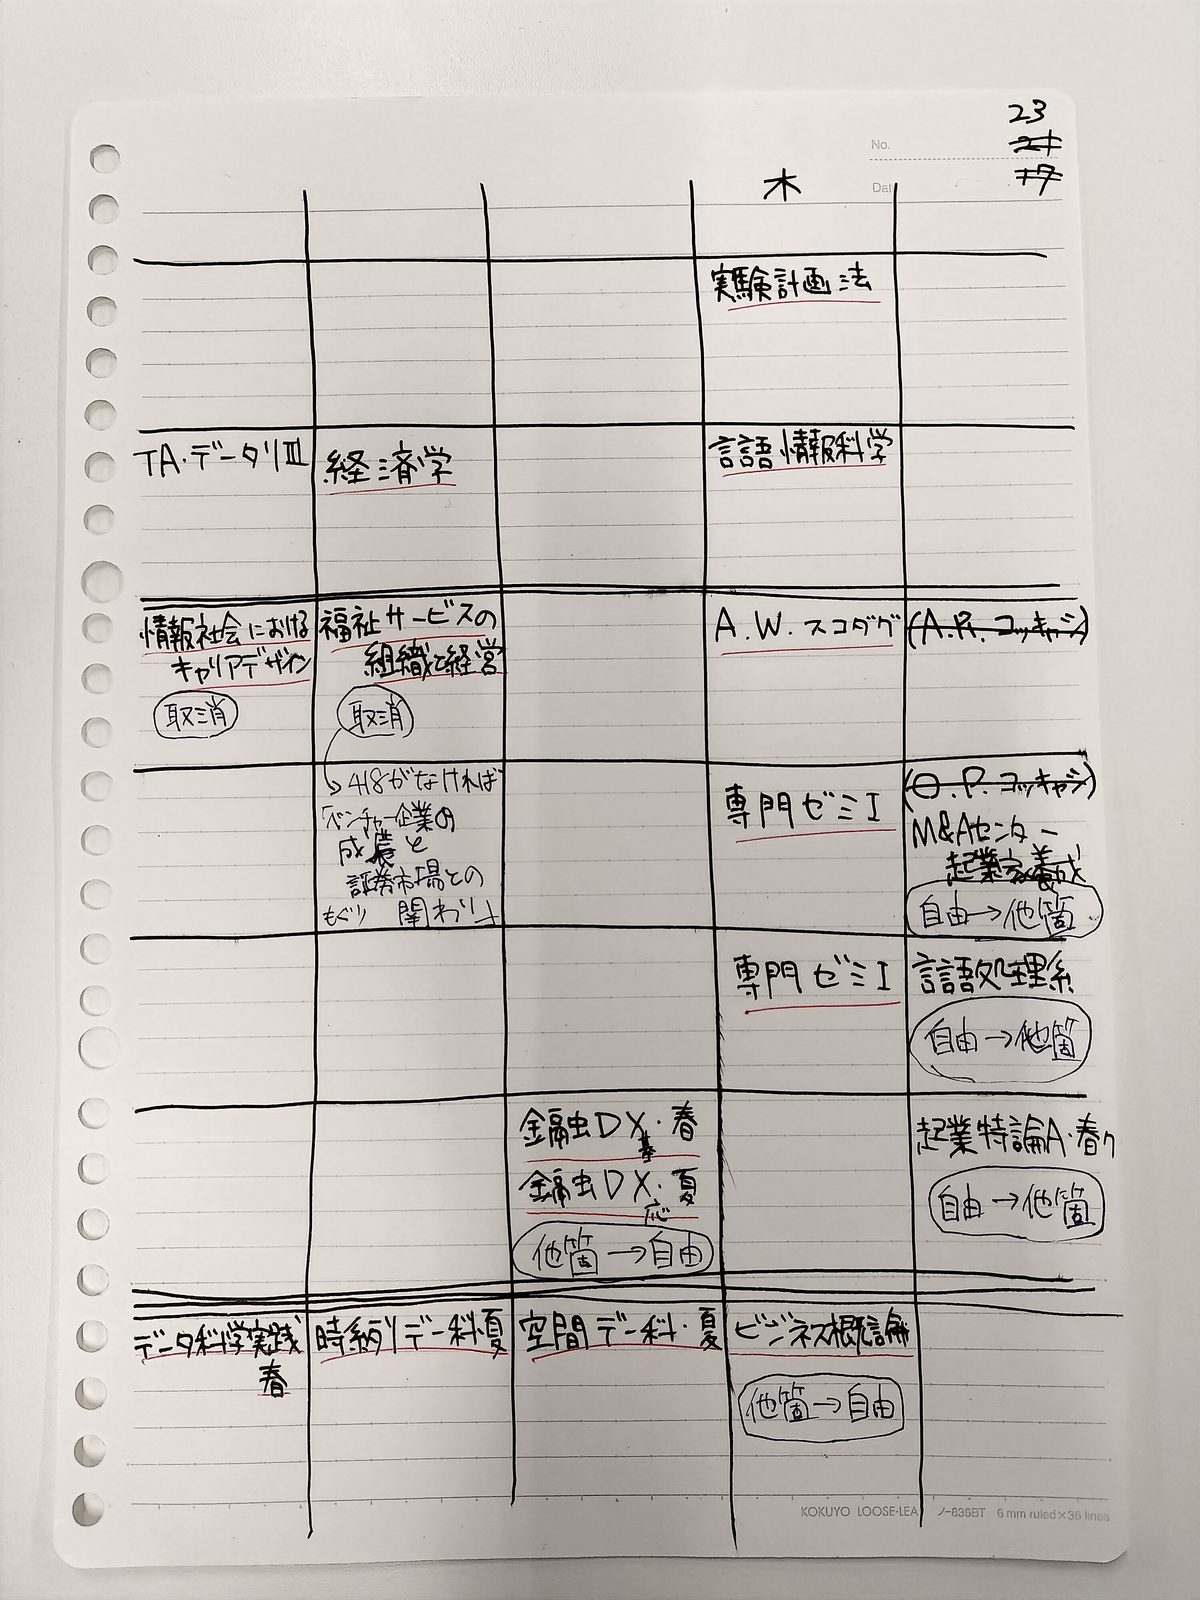 23
No.
木
Dat
実験計画法
TA・データリⅢ
経済学
言語情報科学
情報社会における
キャリアデザイン
取消
福祉サービスの
組織と経営
取消
A.W. スコダグ
(A.R. コッキャジ)
→418がなければ
「ベンチャー企業の
成長と
証券市場との
もぐり 関わり」
専門ゼミI
(O.P. コッキャジ)
M&Aセンター
起業家養成
自由→他箇
専門ゼミI
言語処理系
自由→他箇
金融DX・春
基
金融DX・夏
応
他箇→自由
起業特論A・春ク
自由→他箇
データ科学実践
春
時系列デー科・夏
空間デー科・夏
ビジネス概論
他箇→自由
KOKUYO LOOSE-LEA ノ-836BT 6 mm ruled×36 lines